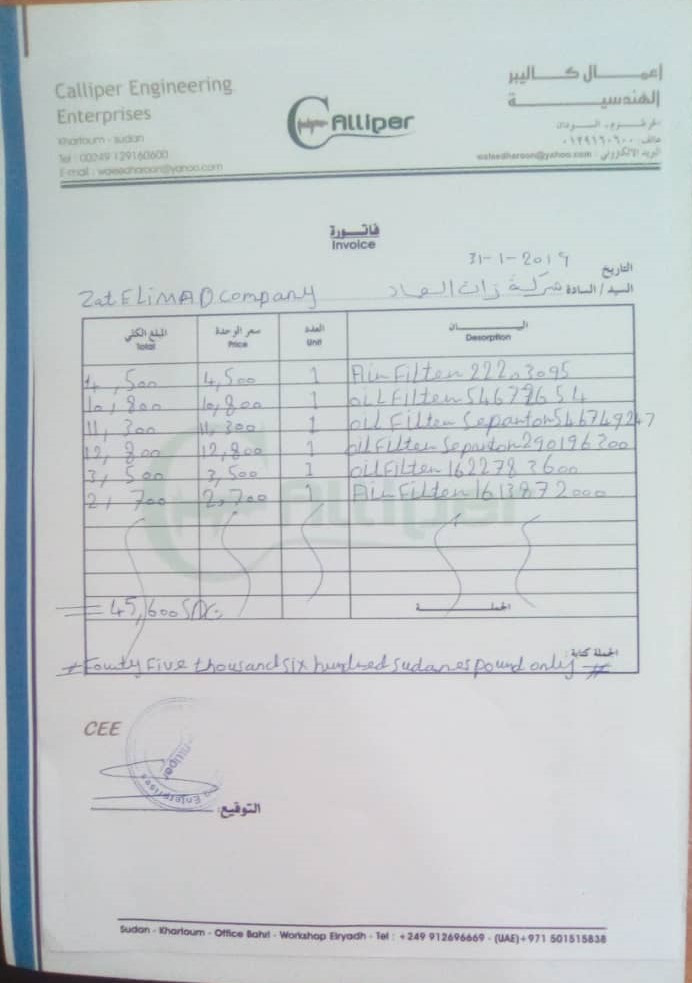 Calliper Engineering
Enterprises
Khartoum - sudan
Tel : 00249 129160600
E-mail : waleedharoon@yahoo.com
Calliper
إعمـــــال كـــاليبر
الهندسيـــــــة
الخرطوم - السودان
هاتف : ٠١٢٩١٦٠٦٠٠
البريد الالكتروني : waleedharoon@yahoo.com
فاتـــورة
Invoice
31-1-2019
التاريخ
Zat ELiMAD company السيد / السادة شركة زات العماد
المبلغ الكلي سعر الوحدة العدد البـــــــيان
Total Price Unit Desorption
4,500 4,500 1 Air Filter 22203095
10,800 10,800 1 oil Filter 54679654
11,300 11,300 1 oil Filter Separton 546749247
12,800 12,800 1 oil Filter Separton 290196300
3,500 3,500 1 oil Filter 1622783600
2,700 2,700 1 Air Filter 1613872000
= 45,600 SDG. الجملــــــة
الجملة كتابة :
# Fourty Five thousand six hundred sudanes pound only #
CEE
Calliper
Enterprises
التوقيع:
Sudan - Khartoum - Office Bahri - Workshop Elryadh - Tel : +249 912696669 - (UAE)+971 501515838